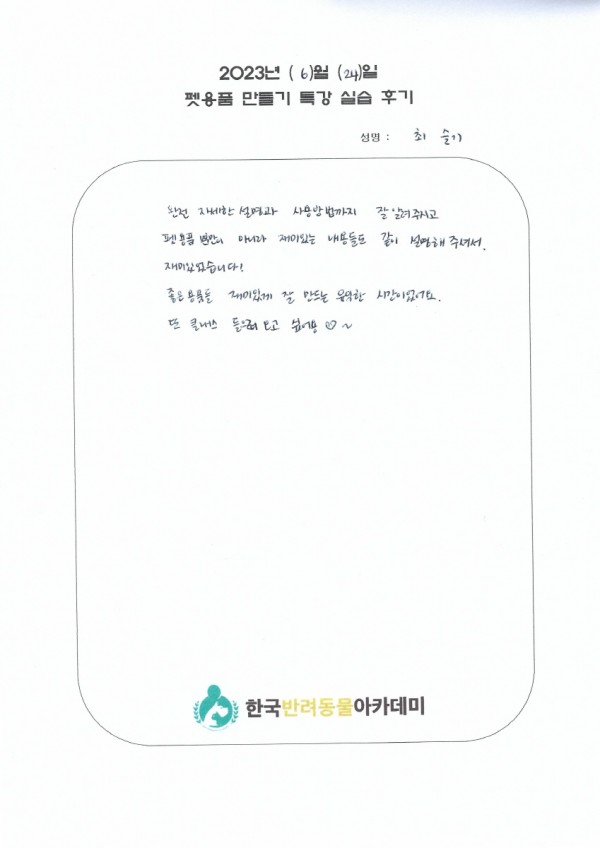 2023년 ( 6 )월 (24)일
펫용품 만들기 특강 실습 후기
성명 : 최 슬기
완전 자세한 설명과 사용방법까지 잘 알려주시고
펫용품 뿐만이 아니라 재미있는 내용들도 같이 설명해 주셔서.
재미있었습니다!
좋은 용품들 재미있게 잘 만드는 유익한 시간이었어요.
또 클래스 들으러 오고 싶어용 ♡ ~
한국반려동물아카데미